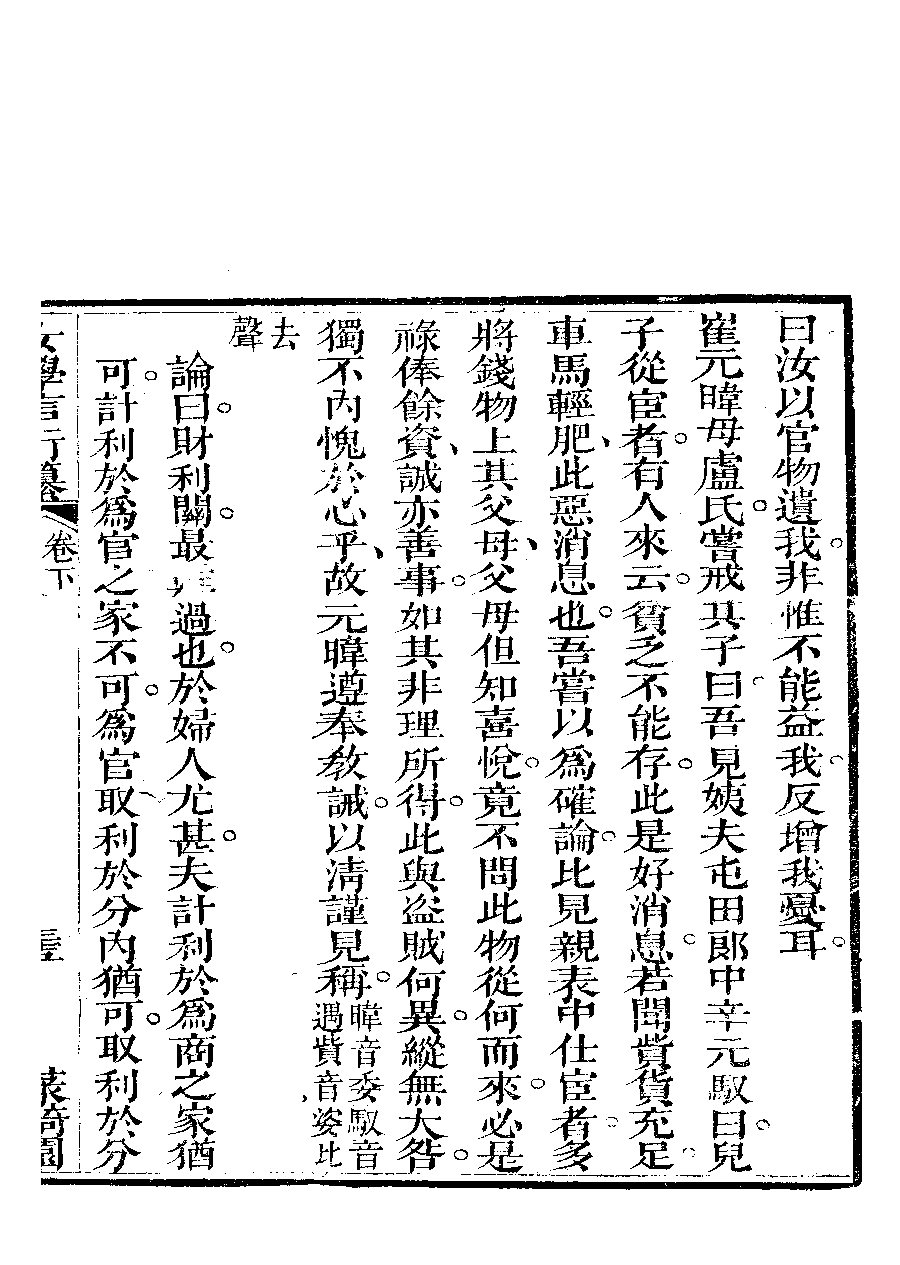 曰汝以官物遺我非惟不能益我反增我憂耳
崔元暐母盧氏嘗戒其子曰吾見姨夫屯田郎中辛元馭曰兒
子從宦者有人來云貧乏不能存此是好消息若聞貲貨充足
車馬輕肥此惡消息也吾嘗以爲確論比見親表中仕宦者多
將錢物上其父母父母但知喜悅竟不問此物從何而來必是
祿俸餘資誠亦善事如其非理所得此與盜賊何異縱無大咎
獨不內愧於心乎故元暐遵奉教誡以淸謹見稱暐音委馭音
遇貲音姿比
去
聲
論曰財利關最難過也於婦人尤甚夫計利於爲商之家猶
可計利於爲官之家不可爲官取利於分內猶可取利於分
女學言行纂 卷下